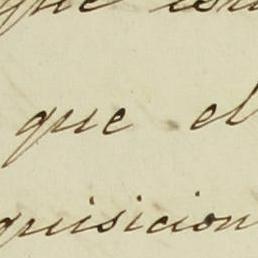 que
que el
quisicion